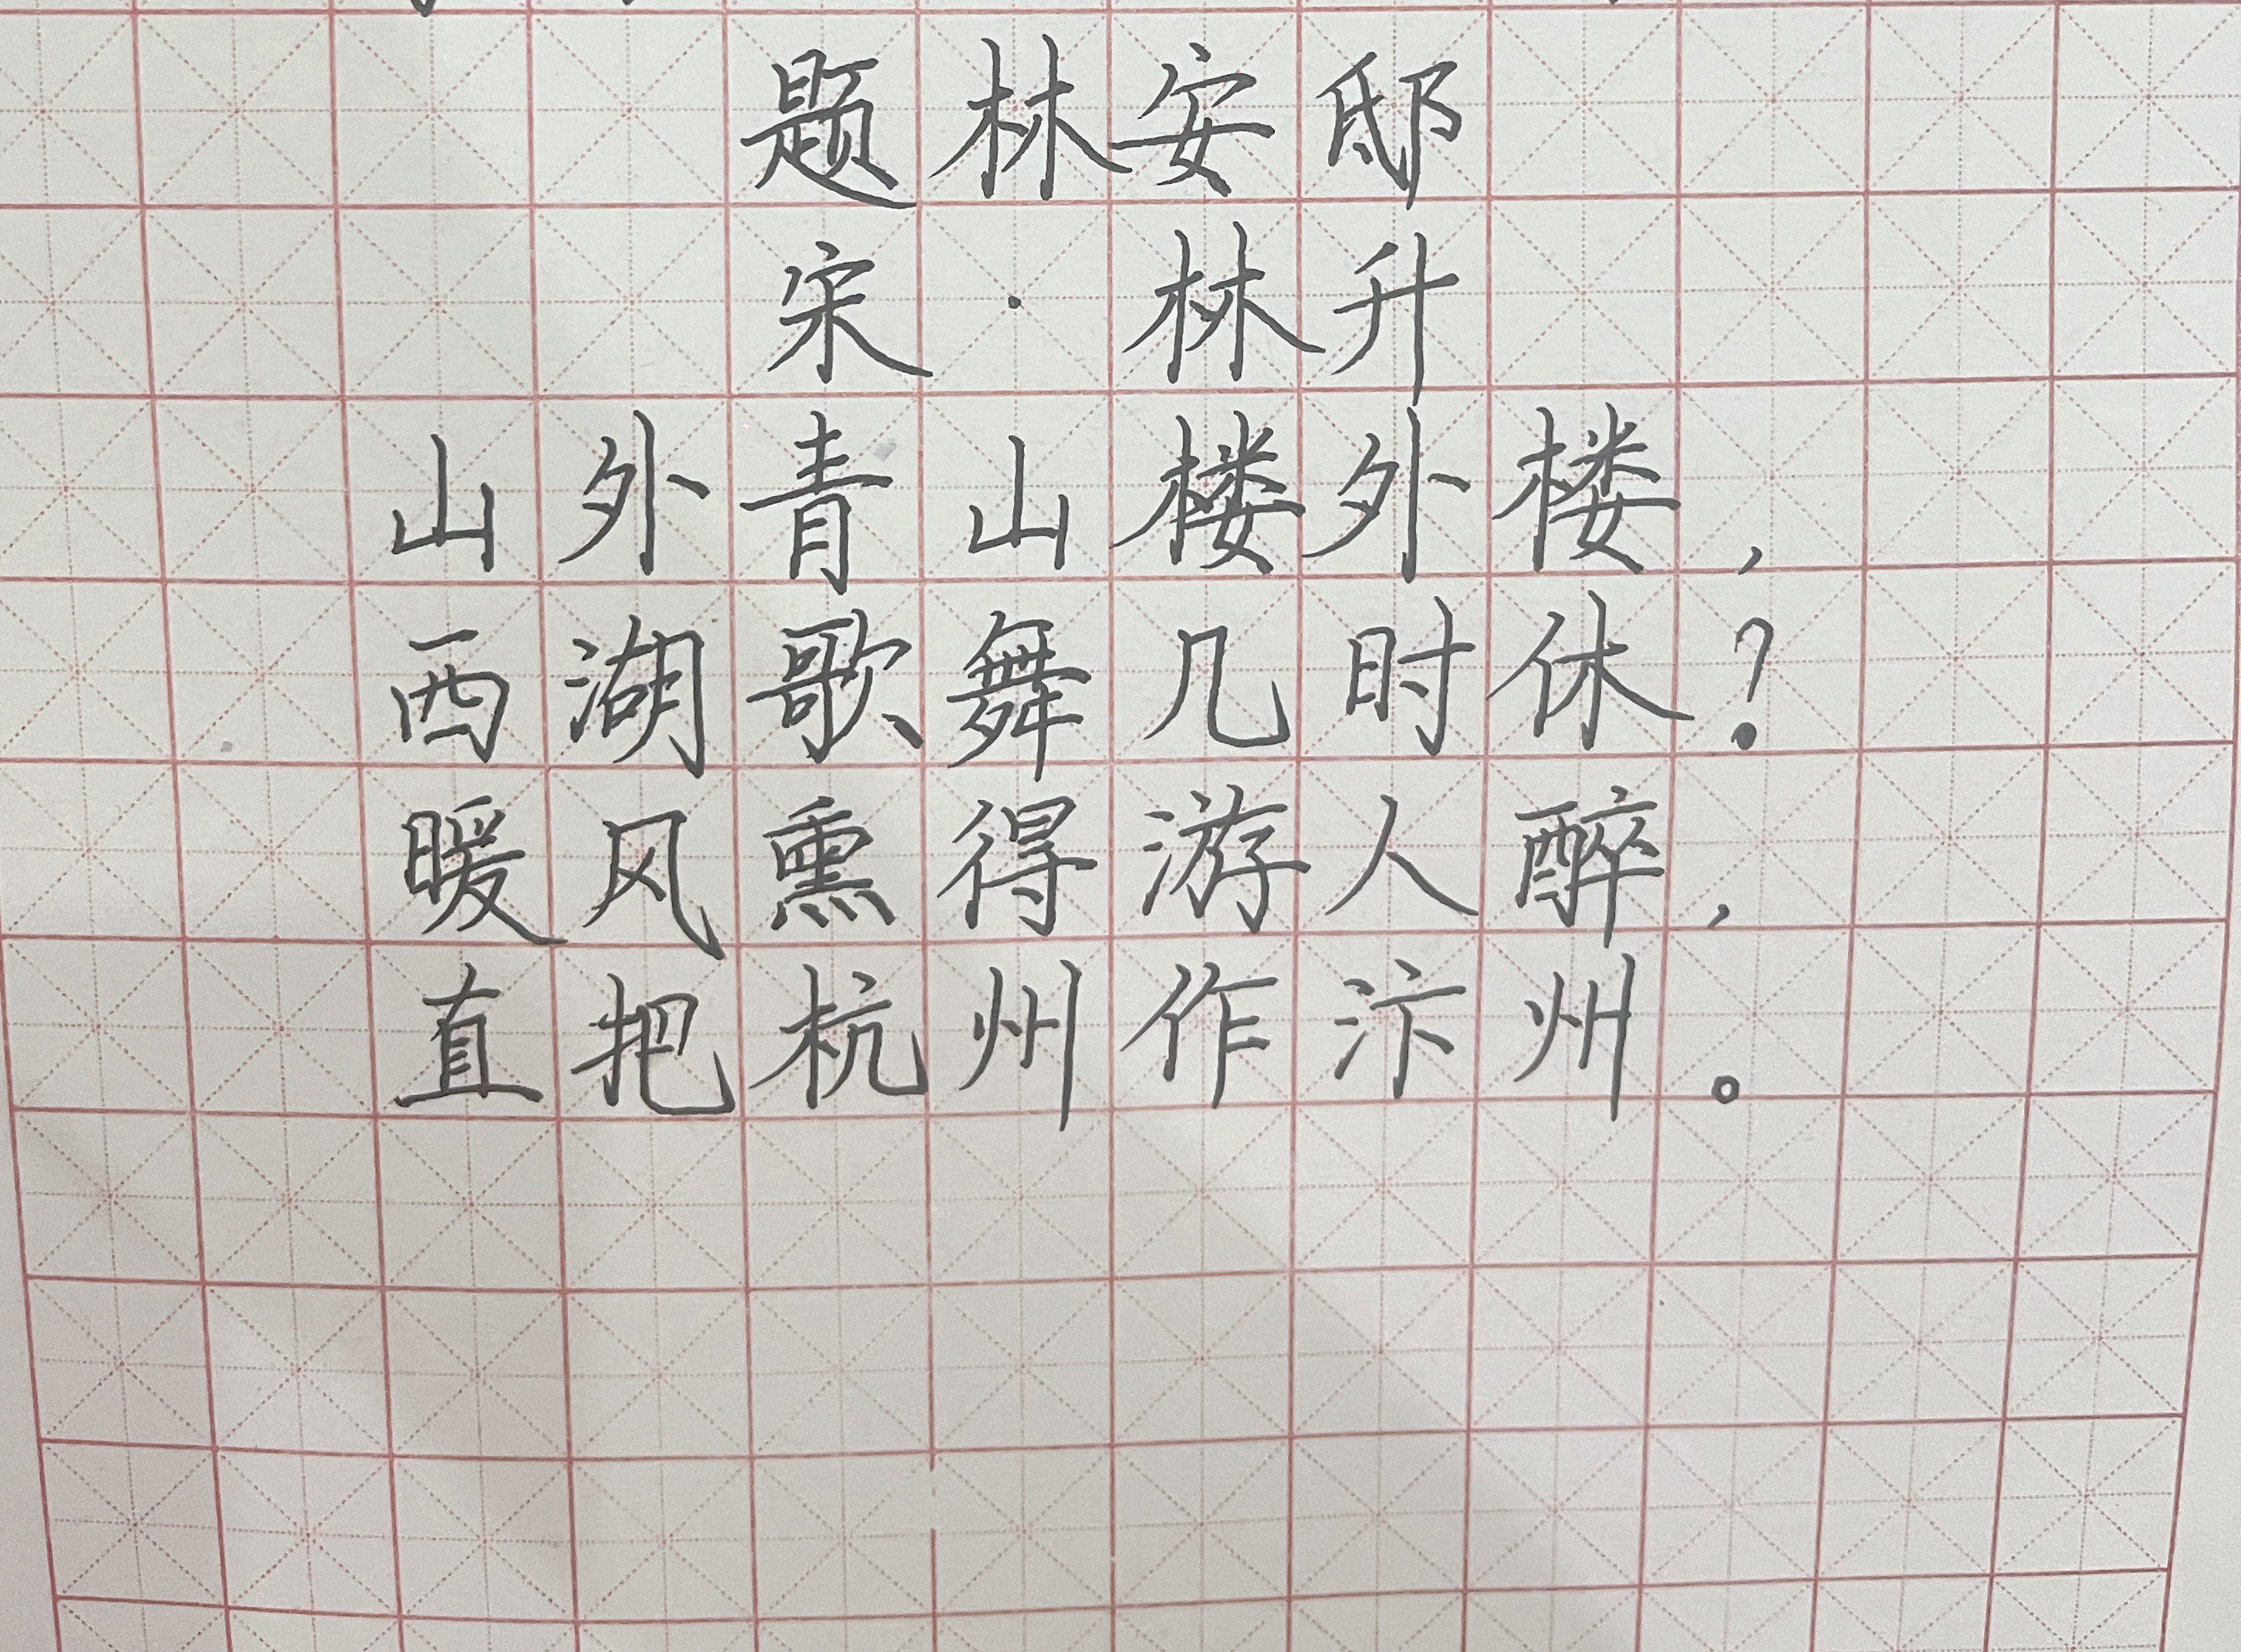 题林安邸
宋·林升
山外青山楼外楼，
西湖歌舞几时休？
暖风熏得游人醉，
直把杭州作汴州。